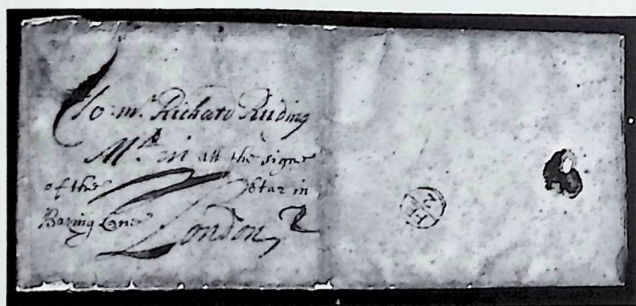 To mr Richard Ruding
Mrt in att the signe
of the Star in
Basing Lane
London
4